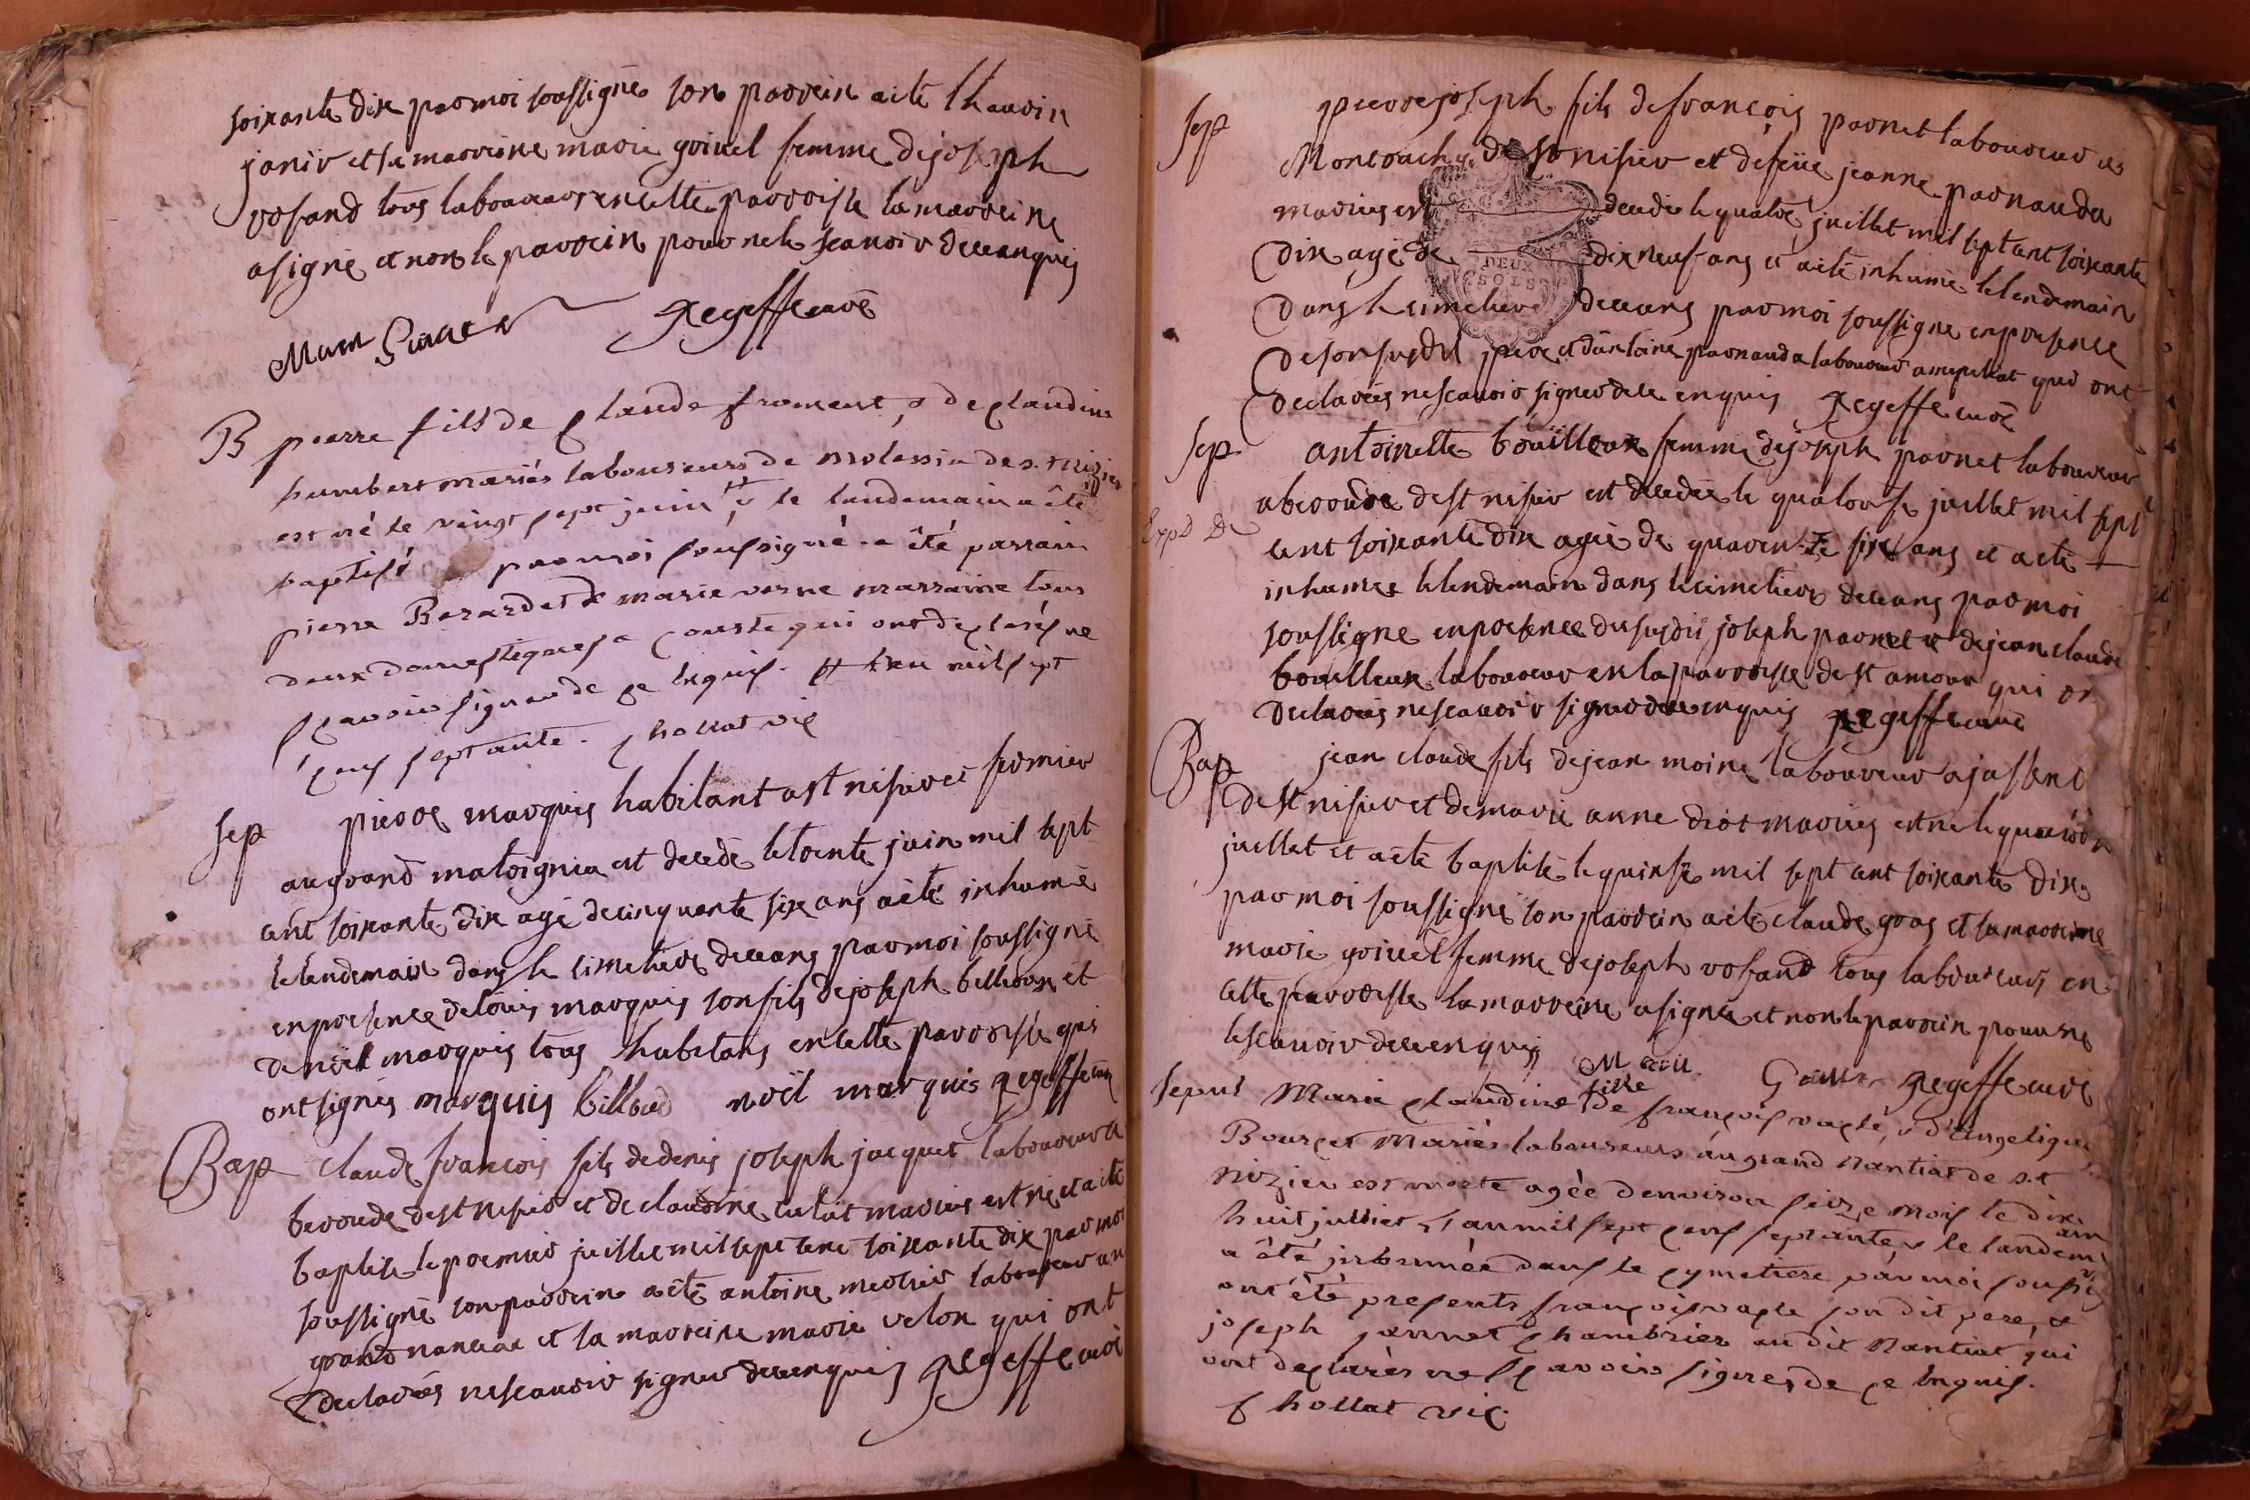 soixante dix par moi soussigné son parrein a été
janir et sa marreine marie goiuel femme de joseph
vosand tous laboureurs en cette parroisse la marreine
a signé et non le parrein pour ne le scauoir de ce enquis
gregeffe curé
B pierre fils de claude froment, & de claudine
humbert mariés laboureurs de molessia de s.t nizier
est né le vingt sept juin # & le landemain a été
baptisé par moi soussigné. a été parrain
pierre Berardet & marie verne marraine tous
deux domestiques a qui ont declarés ne
sçavoir signer de ce enquis. # l'an mil sept
cens septante. chollat vic
sep pierre marquis habitant a st nisier et fermier
au grand matoignia est decedé le trente juin mil sept
cent soixante dix agé de cinquante six ans a été inhumé
le lendemain dans le cimetiere de ceans par moi soussigné
en presence de louis marquis son fils de joseph billioux et
de noël marquis tous habitans en cette parroisse qui
ont signés marquis billoud noël marquis gregeffe curé
Bap claude françois fils de denis joseph jacquet laboureur a
beroude de st nisier et de claudine mariés est né et a été
baptisé le premier juillet mil sept cent soixante dix par moi
soussigné son parrein a été antoine laboureur au
grand nanciat et la marreine marie velon qui ont
declarés ne scauoir signer de ce enquis gregeffe curé
sep pierre joseph fils de francois parnet laboureur a
de st nisier et de feüe jeanne parnauda
mariés est decedé le quatre juillet mil sept cent soixante
dix agé de dix neuf ans et a été inhumé le lendemain
dans le cimetiere de ceans par moi soussigné en presence
de son susdit pere et d'antoine parnauda laboureur qui ont
declarés ne scauoir signer de ce enquis gregeffe curé
DEUX
SOLS
sep antoinette boüilloux femme de joseph parnet laboureur
a beroude de st nisier est decedée le quatorse juillet mil sept
Exp.D De
cent soixante dix agée de quarente six ans et a été
inhumée le lendemain dans le cimetiere de ceans par moi
soussigné en presence du susdit joseph parnet et de jean claude
bouilloux laboureur en la parroisse de st amour qui on
declarés ne scauoir signer de ce enquis gregeffe curé
Bap jean claude fils de jean moine laboureur a
de st nisier et de marie anne mariés est né le quatorse
juillet et a été baptisé le quinse mil sept cent soixante dix
par moi soussigné son parrein a été claude gras et sa marreine
marie goiuel femme de joseph vosand tous laboureurs en
cette parroisse la marreine a signé et non le parrein pour ne
le scauoir de ce enquis gregeffe curé
sepul Marie claudine fille de françois vuclé, & d'angelique
Bourcet mariés laboureurs au grand Nantiat de s.t
nizier est morte agée d'environ seize mois le dix
huit julliet l'an mil sept cens septante, & le landemain
a été inhumée dans le cymetiere par moi soussig
ont été presents françois son dit pere, &
joseph jannet chambrier au dit Nantiat qui
ont declarés ne sçavoir signer de ce enquis.
chollat vic.